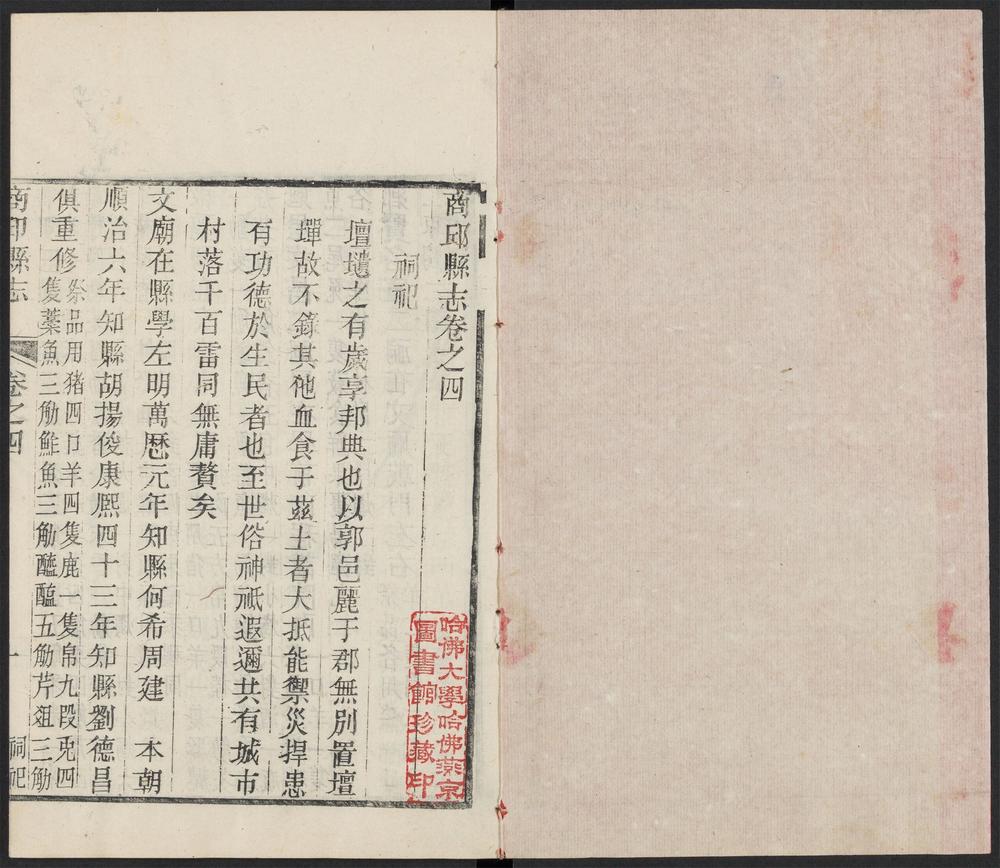 商邱縣志卷之四
祠祀
壇壝之有歲享邦典也以郭邑麗于郡無別置壇
墠故不錄其他血食于茲土者大抵能禦災捍患
有功德於生民者也至世俗神祇遐邇共有城市
村落千百雷同無庸贅矣
文廟在縣學左明萬曆元年知縣何希周建　本朝
順治六年知縣胡揚俊康熈四十三年知縣劉德昌
俱重修祭品用猪四口羊四隻鹿一隻帛九段兎四
隻藁魚三觔鮓魚三觔醯醢五觔芹葅三觔
商邱縣志
卷之四
祠祀
一
哈佛大學哈佛燕京
圖書館珍藏印